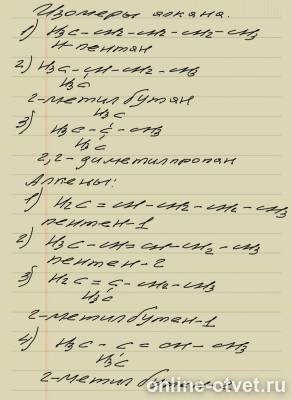 Изомеры алкана.
1) H3C - CH2 - CH2 - CH2 - CH3
Н-пентан
2) H3C - CH - CH2 - CH3
H3C
2-метил бутан
H3C
3) H3C - C - CH3
H3C
2,2-диметилпропан
Алкены:
1) H2C = CH - CH2 - CH2 - CH3
пентен-1
2) H3C - CH = CH - CH2 - CH3
пентен-2
3) H2C = C - CH2 - CH3
H3C
2-метилбутен-1
4) H3C - C = CH - CH3
H3C
2-метил
online-otvet.ru